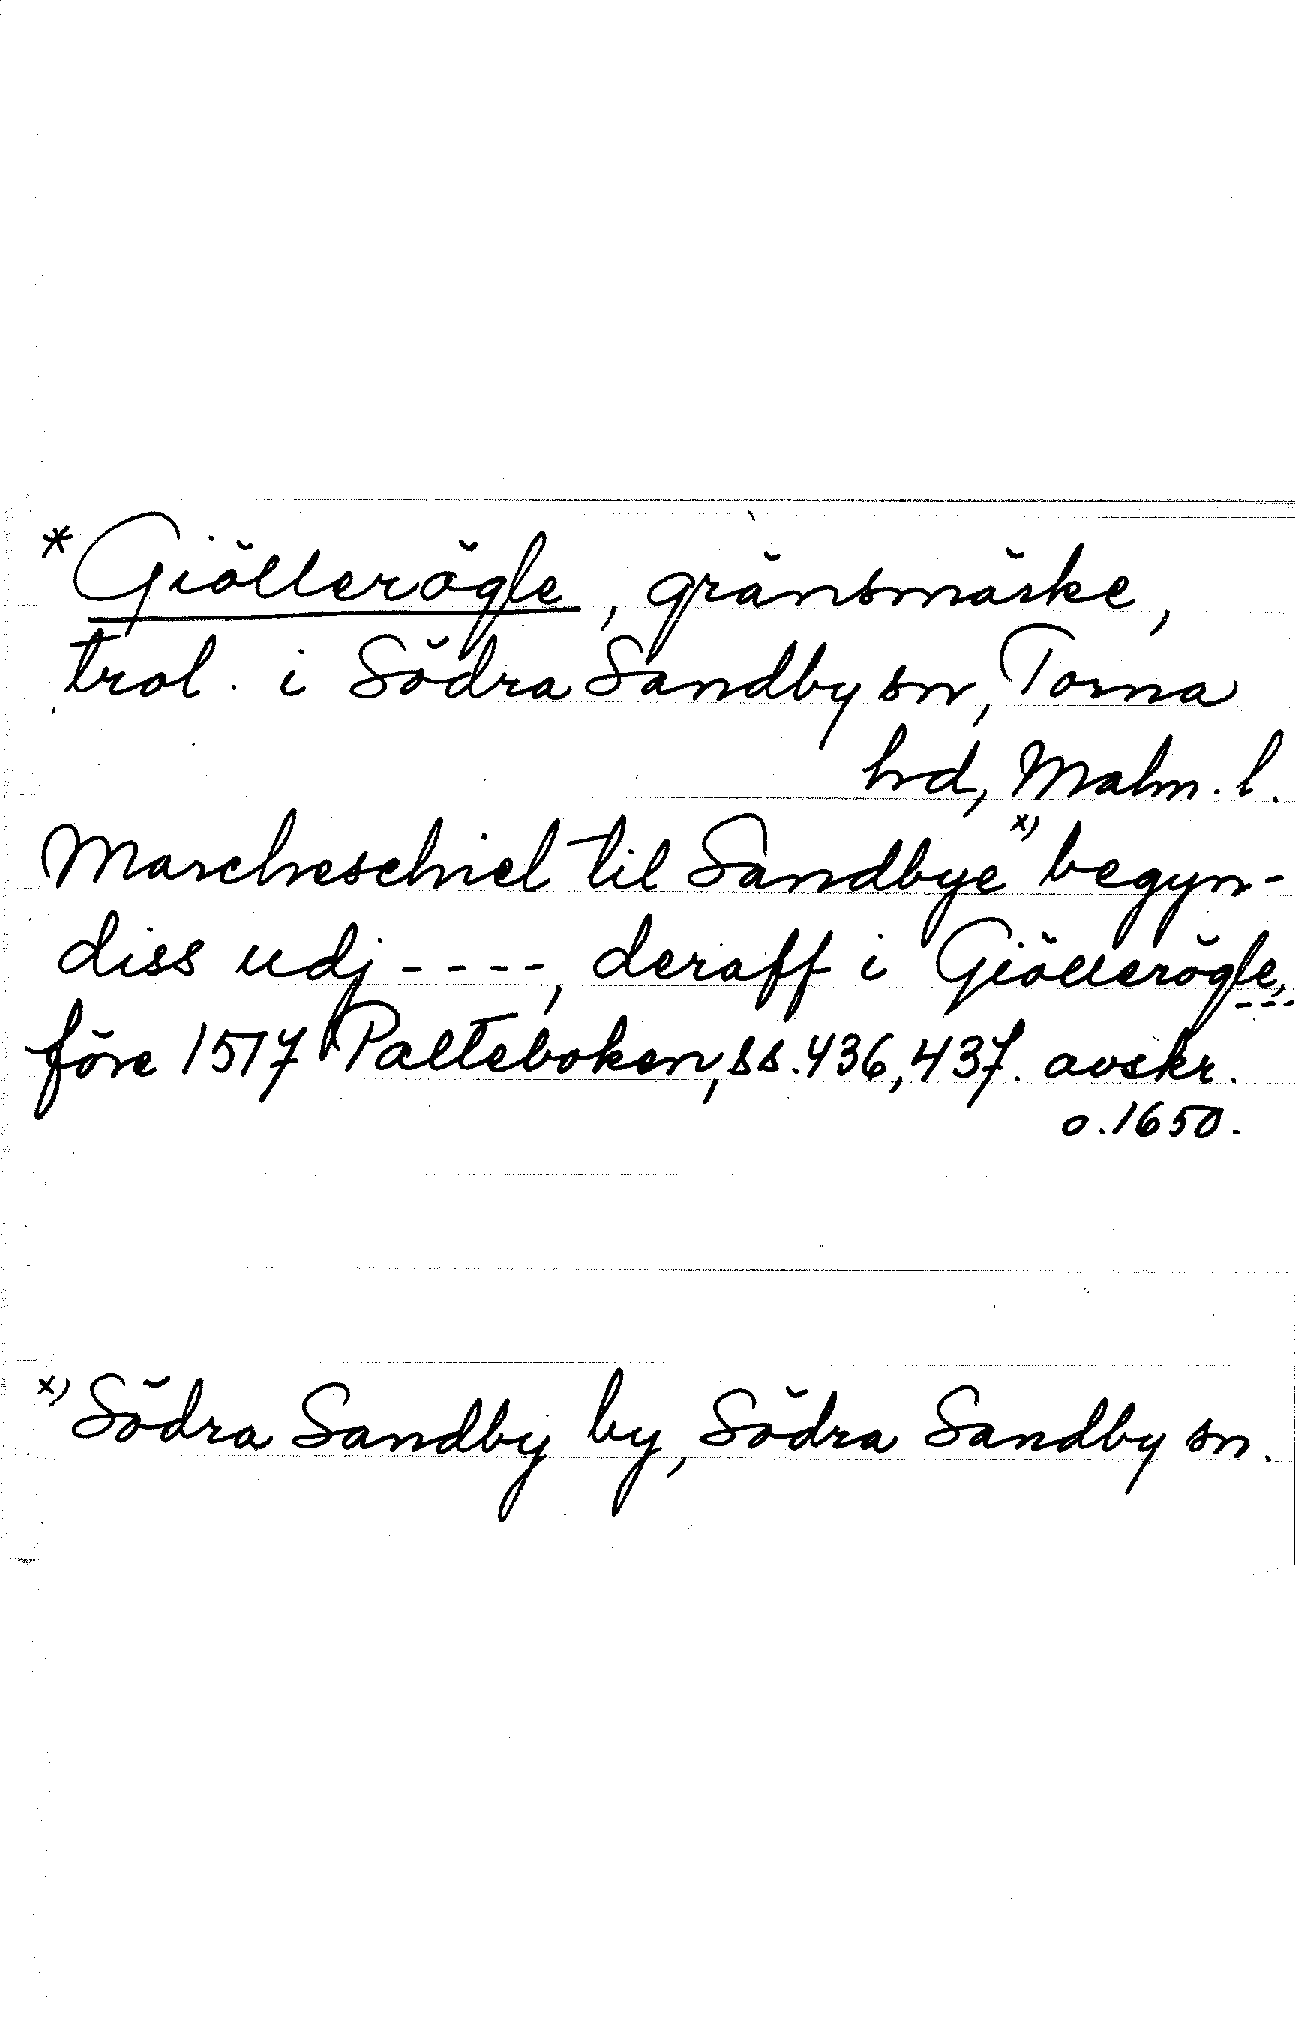 *Giöllerögle, gränsmärke,
trol. i Södra Sandby sn, Torna
hrd, Malm. l.
Marcheschiel til Sandbye x) begyn-
diss udj ----, deraff i Giöllerögle, ---
före 1517 Palteboken, ss. 436, 437. avskr.
o. 1650.
x) Södra Sandby by, Södra Sandby sn.